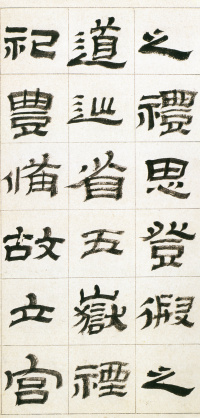 之禮思登假之
道巡省五嶽禋
祀豐備故立宮